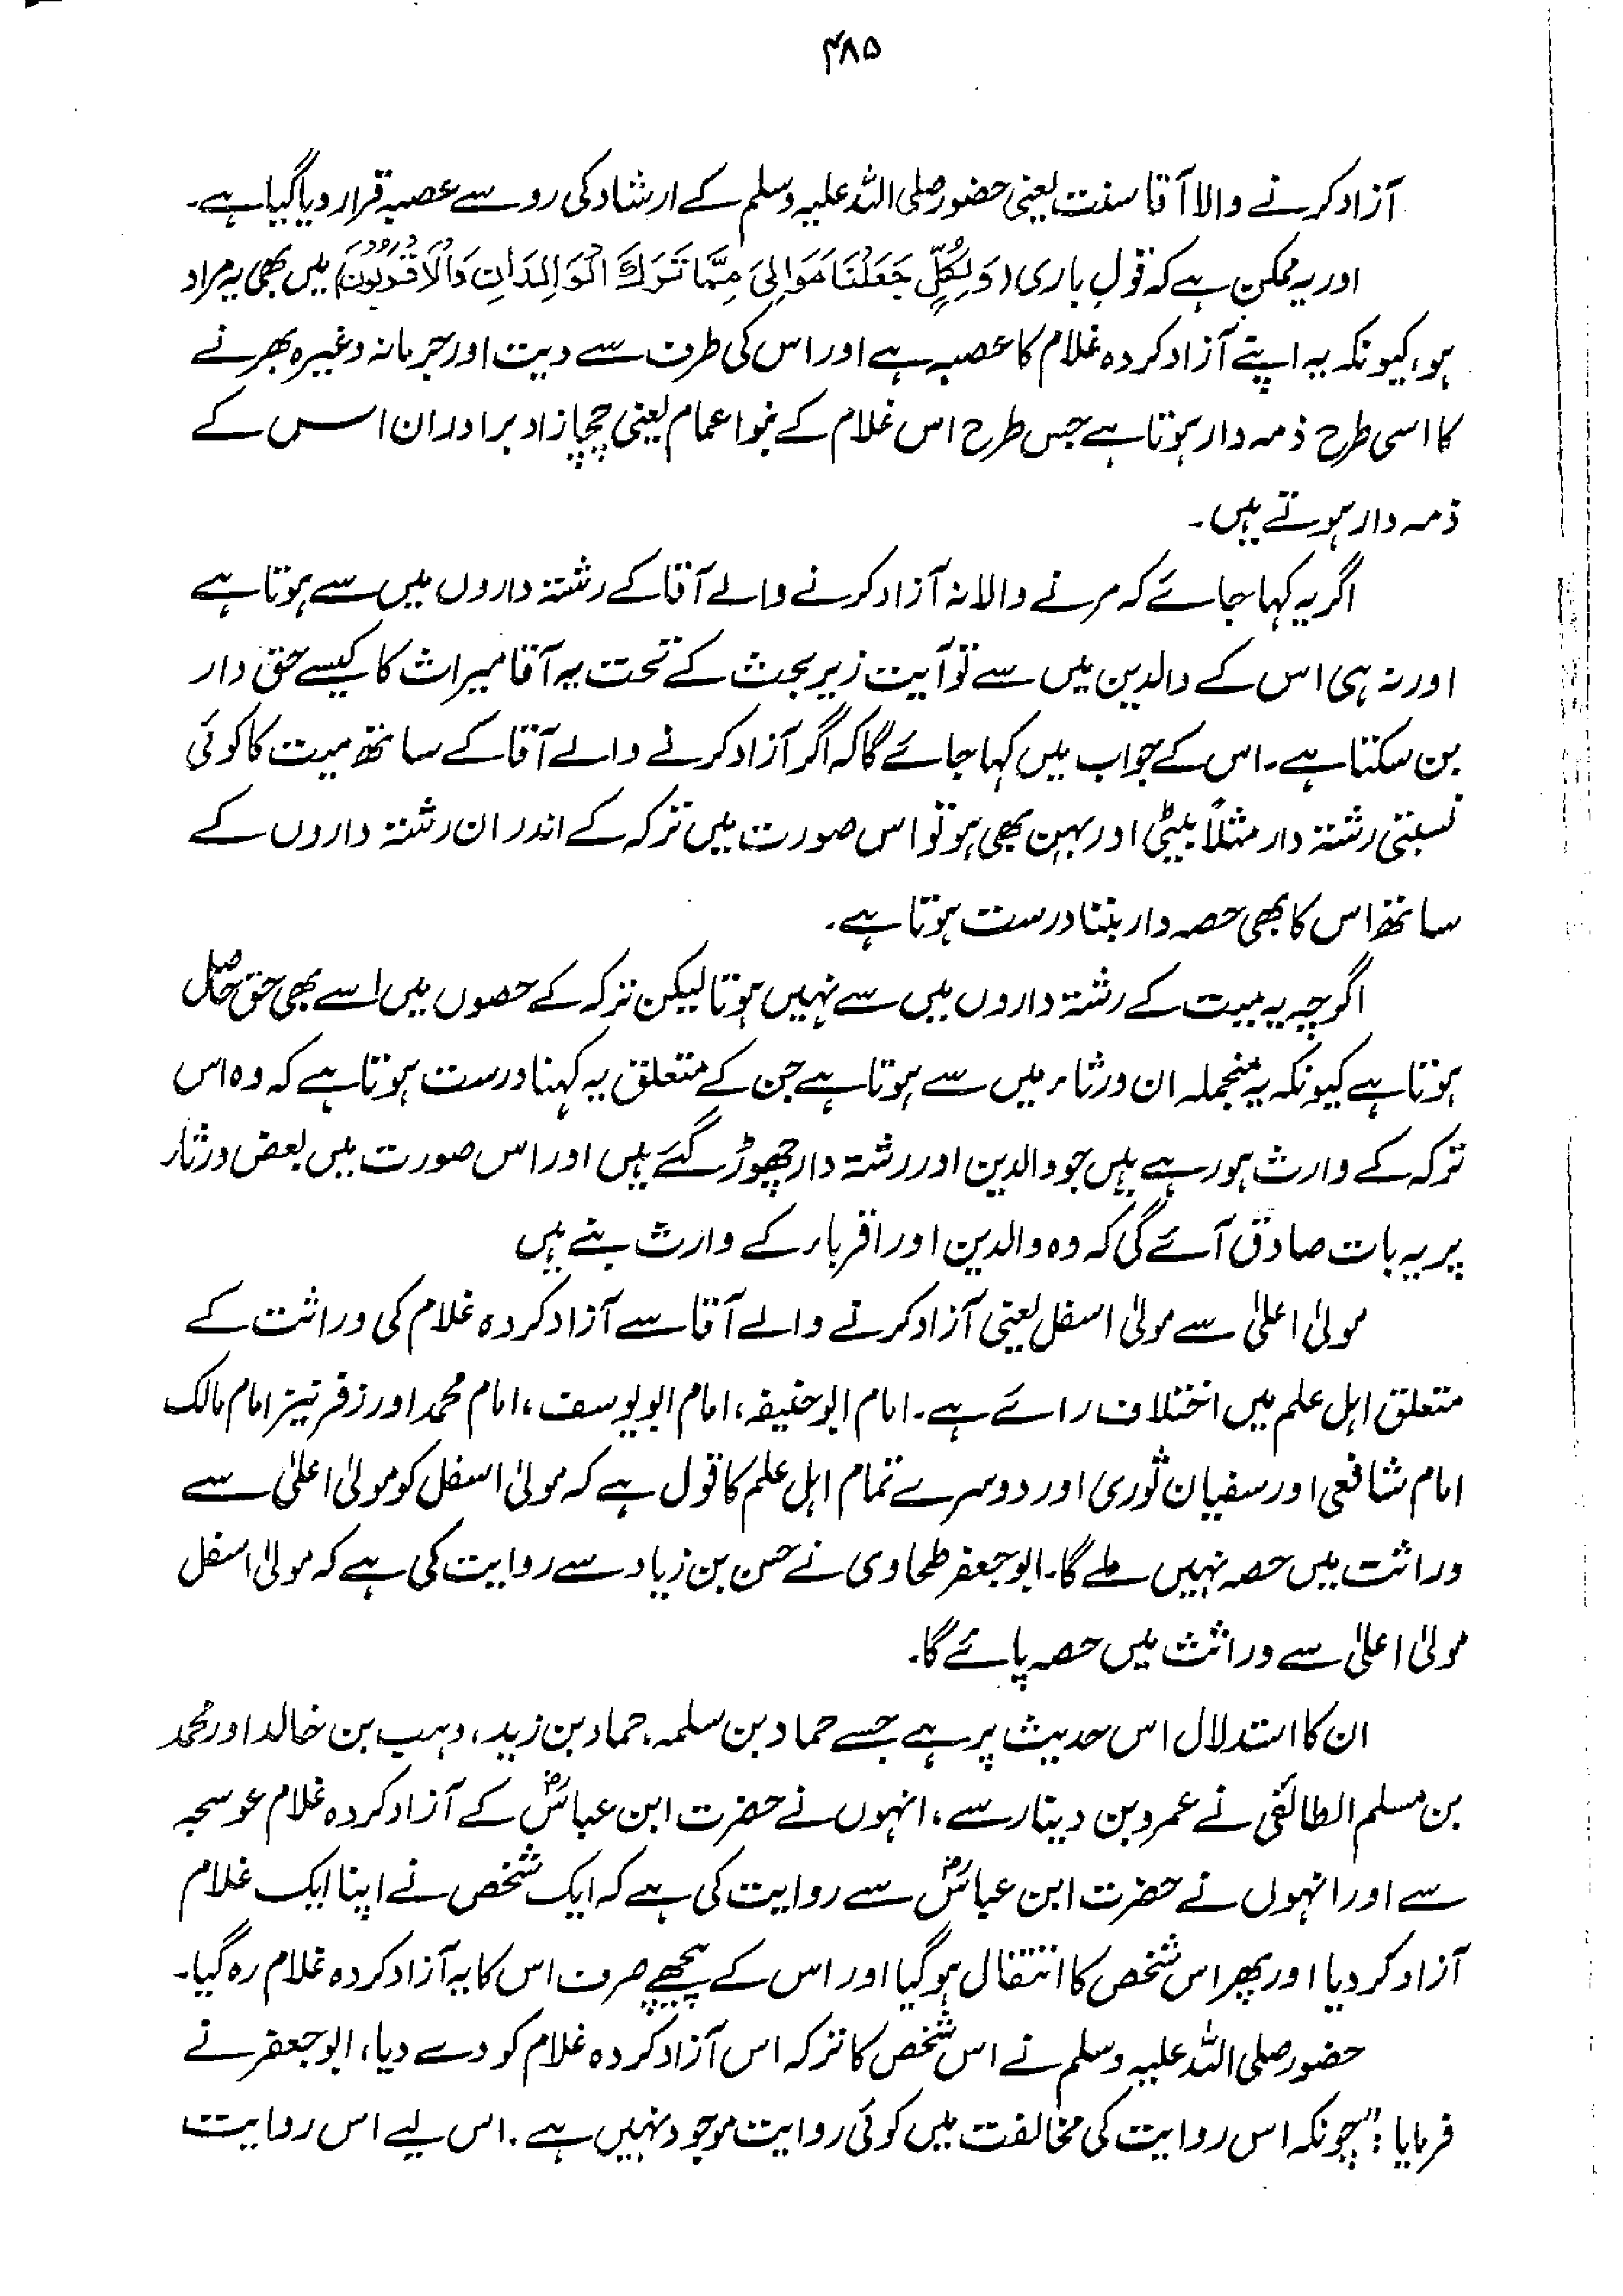 ۴۸۵
آزاد کرنے والا آقا سنت یعنی حضور صلی اللہ علیہ وسلم کے ارشاد کی رو سے عصبہ قرار دیا گیا ہے۔
اور یہ ممکن ہے کہ قولِ باری (وَلِكُلٍّ جَعَلْنَا مَوَالِيَ مِمَّا تَرَكَ الْوَالِدَانِ وَالْأَقْرَبُونَ) میں بھی یہ مراد
ہو، کیونکہ یہ اپنے آزاد کردہ غلام کا عصبہ ہے اور اس کی طرف سے دیت اور جرمانہ وغیرہ بھرنے
کا اسی طرح ذمہ دار ہوتا ہے جس طرح اس غلام کے بنو اعمام یعنی چچازاد برادران اس کے
ذمہ دار ہوتے ہیں۔
اگر یہ کہا جائے کہ مرنے والا نہ آزاد کرنے والے آقا کے رشتہ داروں میں سے ہوتا ہے
اور نہ ہی اس کے والدین میں سے تو آیت زیر بحث کے تحت یہ آقا میراث کا کیسے حق دار
بن سکتا ہے۔ اس کے جواب میں کہا جائے گا کہ اگر آزاد کرنے والے آقا کے ساتھ میت کا کوئی
نسبتی رشتہ دار مثلاً بیٹی اور بہن بھی ہو تو اس صورت میں ترکہ کے اندر ان رشتہ داروں کے
ساتھ اس کا بھی حصہ دار بننا درست ہوتا ہے۔
اگرچہ یہ میت کے رشتہ داروں میں سے نہیں ہوتا لیکن ترکہ کے حصوں میں اسے بھی حق حاصل
ہوتا ہے کیونکہ یہ منجملہ ان ورثاء میں سے ہوتا ہے جن کے متعلق یہ کہنا درست ہوتا ہے کہ وہ اس
ترکہ کے وارث ہو رہے ہیں جو والدین اور رشتہ دار چھوڑ گئے ہیں اور اس صورت میں بعض ورثاء
پر یہ بات صادق آئے گی کہ وہ والدین اور اقرباء کے وارث بنے ہیں
مولیٰ اعلیٰ سے مولیٰ اسفل یعنی آزاد کرنے والے آقا سے آزاد کردہ غلام کی وراثت کے
متعلق اہل علم میں اختلاف رائے ہے۔ امام ابوحنیفہ، امام ابویوسف، امام محمد اور زفر نیز امام مالک
امام شافعی اور سفیان ثوری اور دوسرے تمام اہل علم کا قول ہے کہ مولیٰ اسفل کو مولیٰ اعلیٰ سے
وراثت میں حصہ نہیں ملے گا۔ ابو جعفر طحاوی نے حسن بن زیاد سے روایت کی ہے کہ مولیٰ اسفل
مولیٰ اعلیٰ سے وراثت میں حصہ پائے گا۔
ان کا استدلال اس حدیث پر ہے جسے حماد بن سلمہ، حماد بن زید، وہب بن خالد اور محمد
بن مسلم الطائفی نے عمرو بن دینار سے، انہوں نے حضرت ابن عباسؓ کے آزاد کردہ غلام عوسجہ
سے اور انہوں نے حضرت ابن عباسؓ سے روایت کی ہے کہ ایک شخص نے اپنا ایک غلام
آزاد کر دیا اور پھر اس شخص کا انتقال ہو گیا اور اس کے پیچھے صرف اس کا یہ آزاد کردہ غلام رہ گیا۔
حضور صلی اللہ علیہ وسلم نے اس شخص کا ترکہ اس آزاد کردہ غلام کو دے دیا، ابو جعفر نے
فرمایا : "چونکہ اس روایت کی مخالفت میں کوئی روایت موجود نہیں ہے۔ اس لیے اس روایت